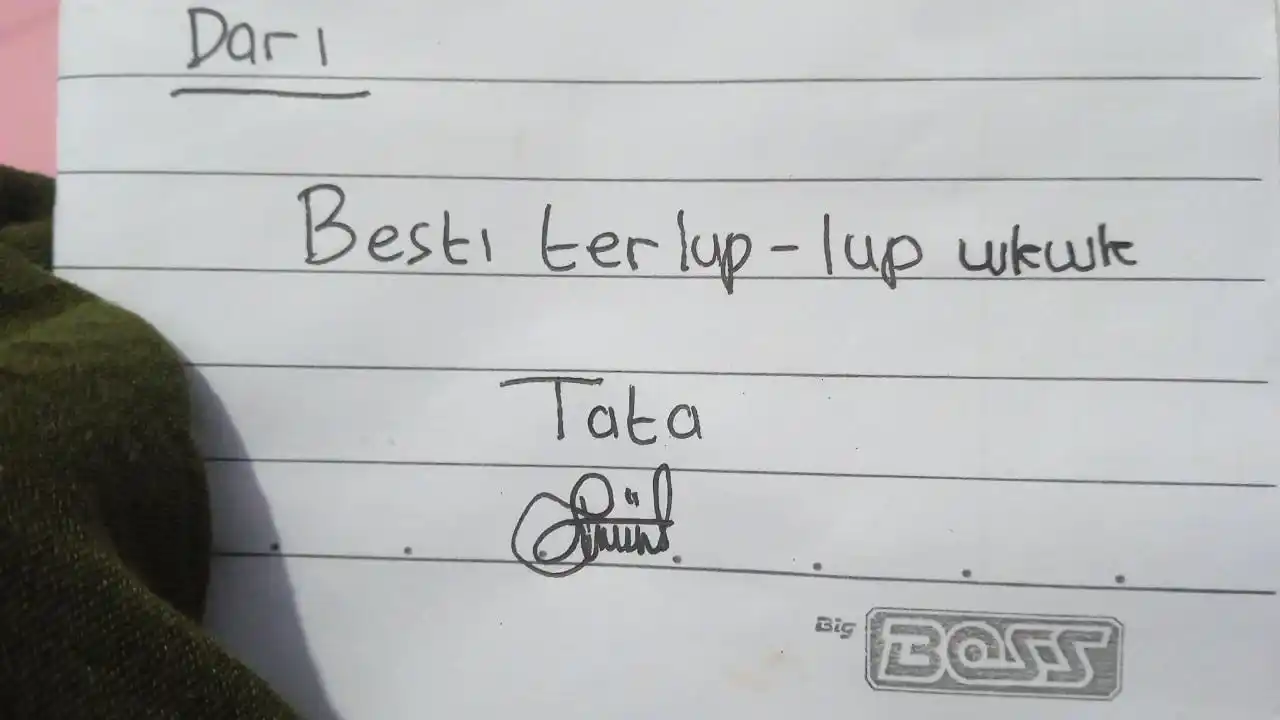 Dari
Besti terlup-lup wkwk
Tata
Big BOSS